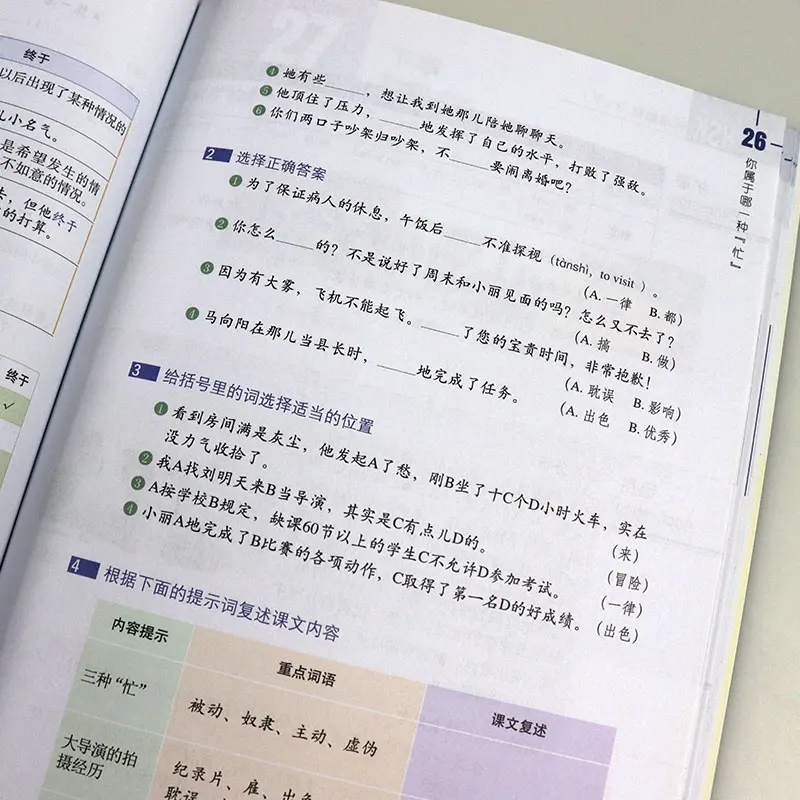 终于
以后出现了某种情况的
儿小名气。
是希望发生的情
不如意的情况。
去，但他终于
的打算。
终于
✓
27
④ 她有些____，想让我到她那儿陪她聊聊天。
⑤ 他顶住了压力，____地发挥了自己的水平，打败了强敌。
⑥ 你们两口子吵架归吵架，不____要闹离婚吧？
2 选择正确答案
① 为了保证病人的休息，午饭后____不准探视（tànshì, to visit）。
（A. 一律 B. 都）
② 你怎么____的？不是说好了周末和小丽见面的吗？怎么又不去了？
（A. 搞 B. 做）
③ 因为有大雾，飞机不能起飞。____了您的宝贵时间，非常抱歉！
（A. 耽误 B. 影响）
④ 马向阳在那儿当县长时，____地完成了任务。
（A. 出色 B. 优秀）
3 给括号里的词选择适当的位置
① 看到房间满是灰尘，他发起A了愁，刚B坐了十C个D小时火车，实在
没力气收拾了。
（来）
② 我A找刘明天来B当导演，其实是C有点儿D的。
（冒险）
③ A按学校B规定，缺课60节以上的学生C不允许D参加考试。
（一律）
④ 小丽A地完成了B比赛的各项动作，C取得了第一名D的好成绩。
（出色）
4 根据下面的提示词复述课文内容
内容提示
重点词语
课文复述
三种“忙”
被动、奴隶、主动、虚伪
大导演的拍
摄经历
纪录片、雇、出色、
耽误、
26
你属于哪一种『忙』